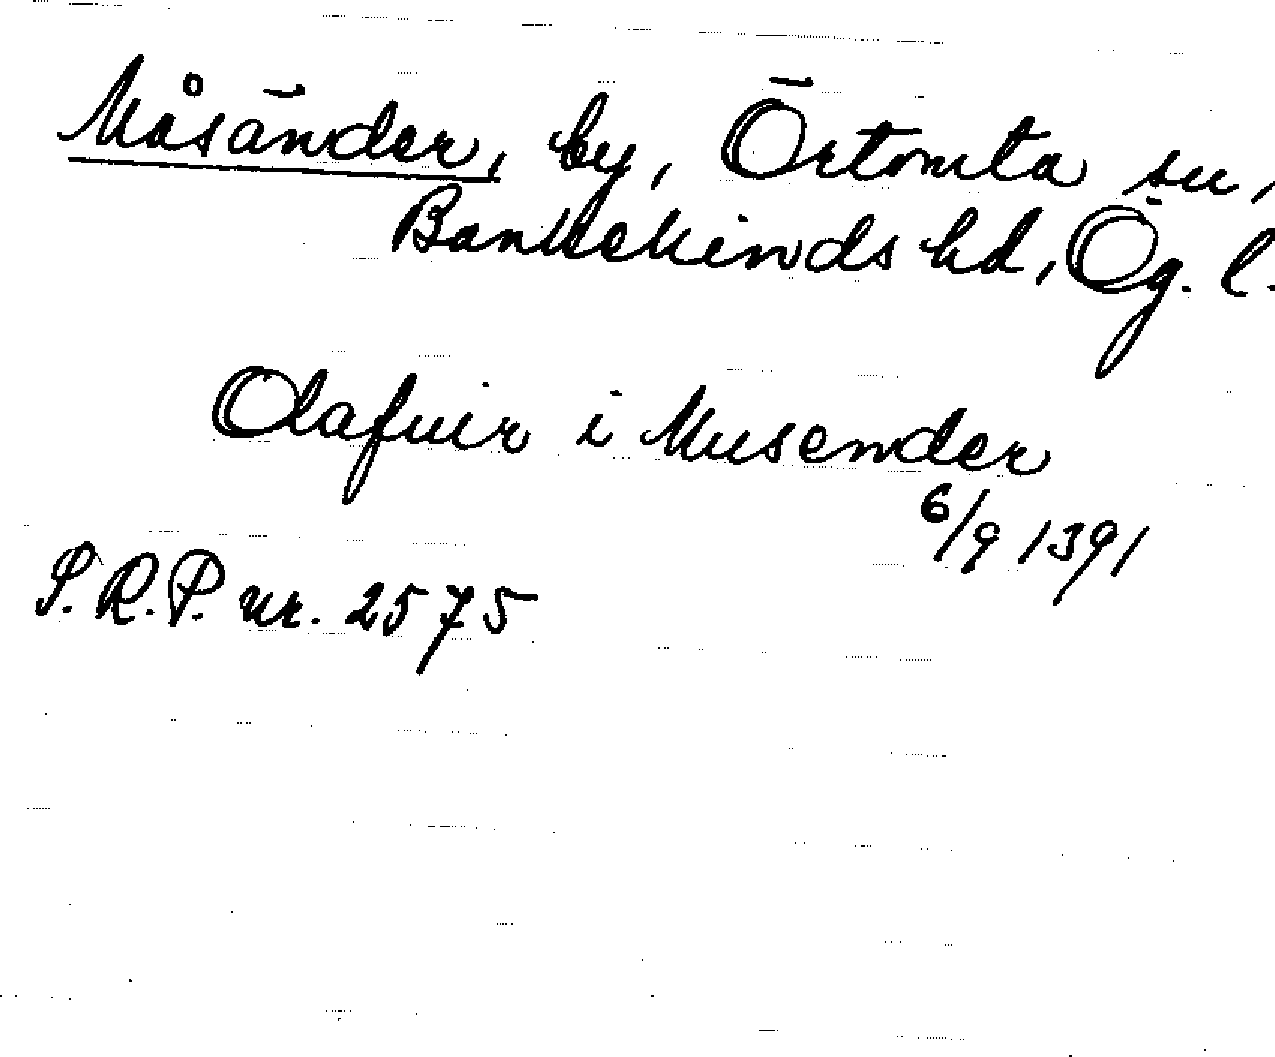 Måsänder, by, Örtomta sn,
Bankekinds hd, Ög. l.
Olafuir i Musender
6/9 1391
S.R.P. nr. 2575